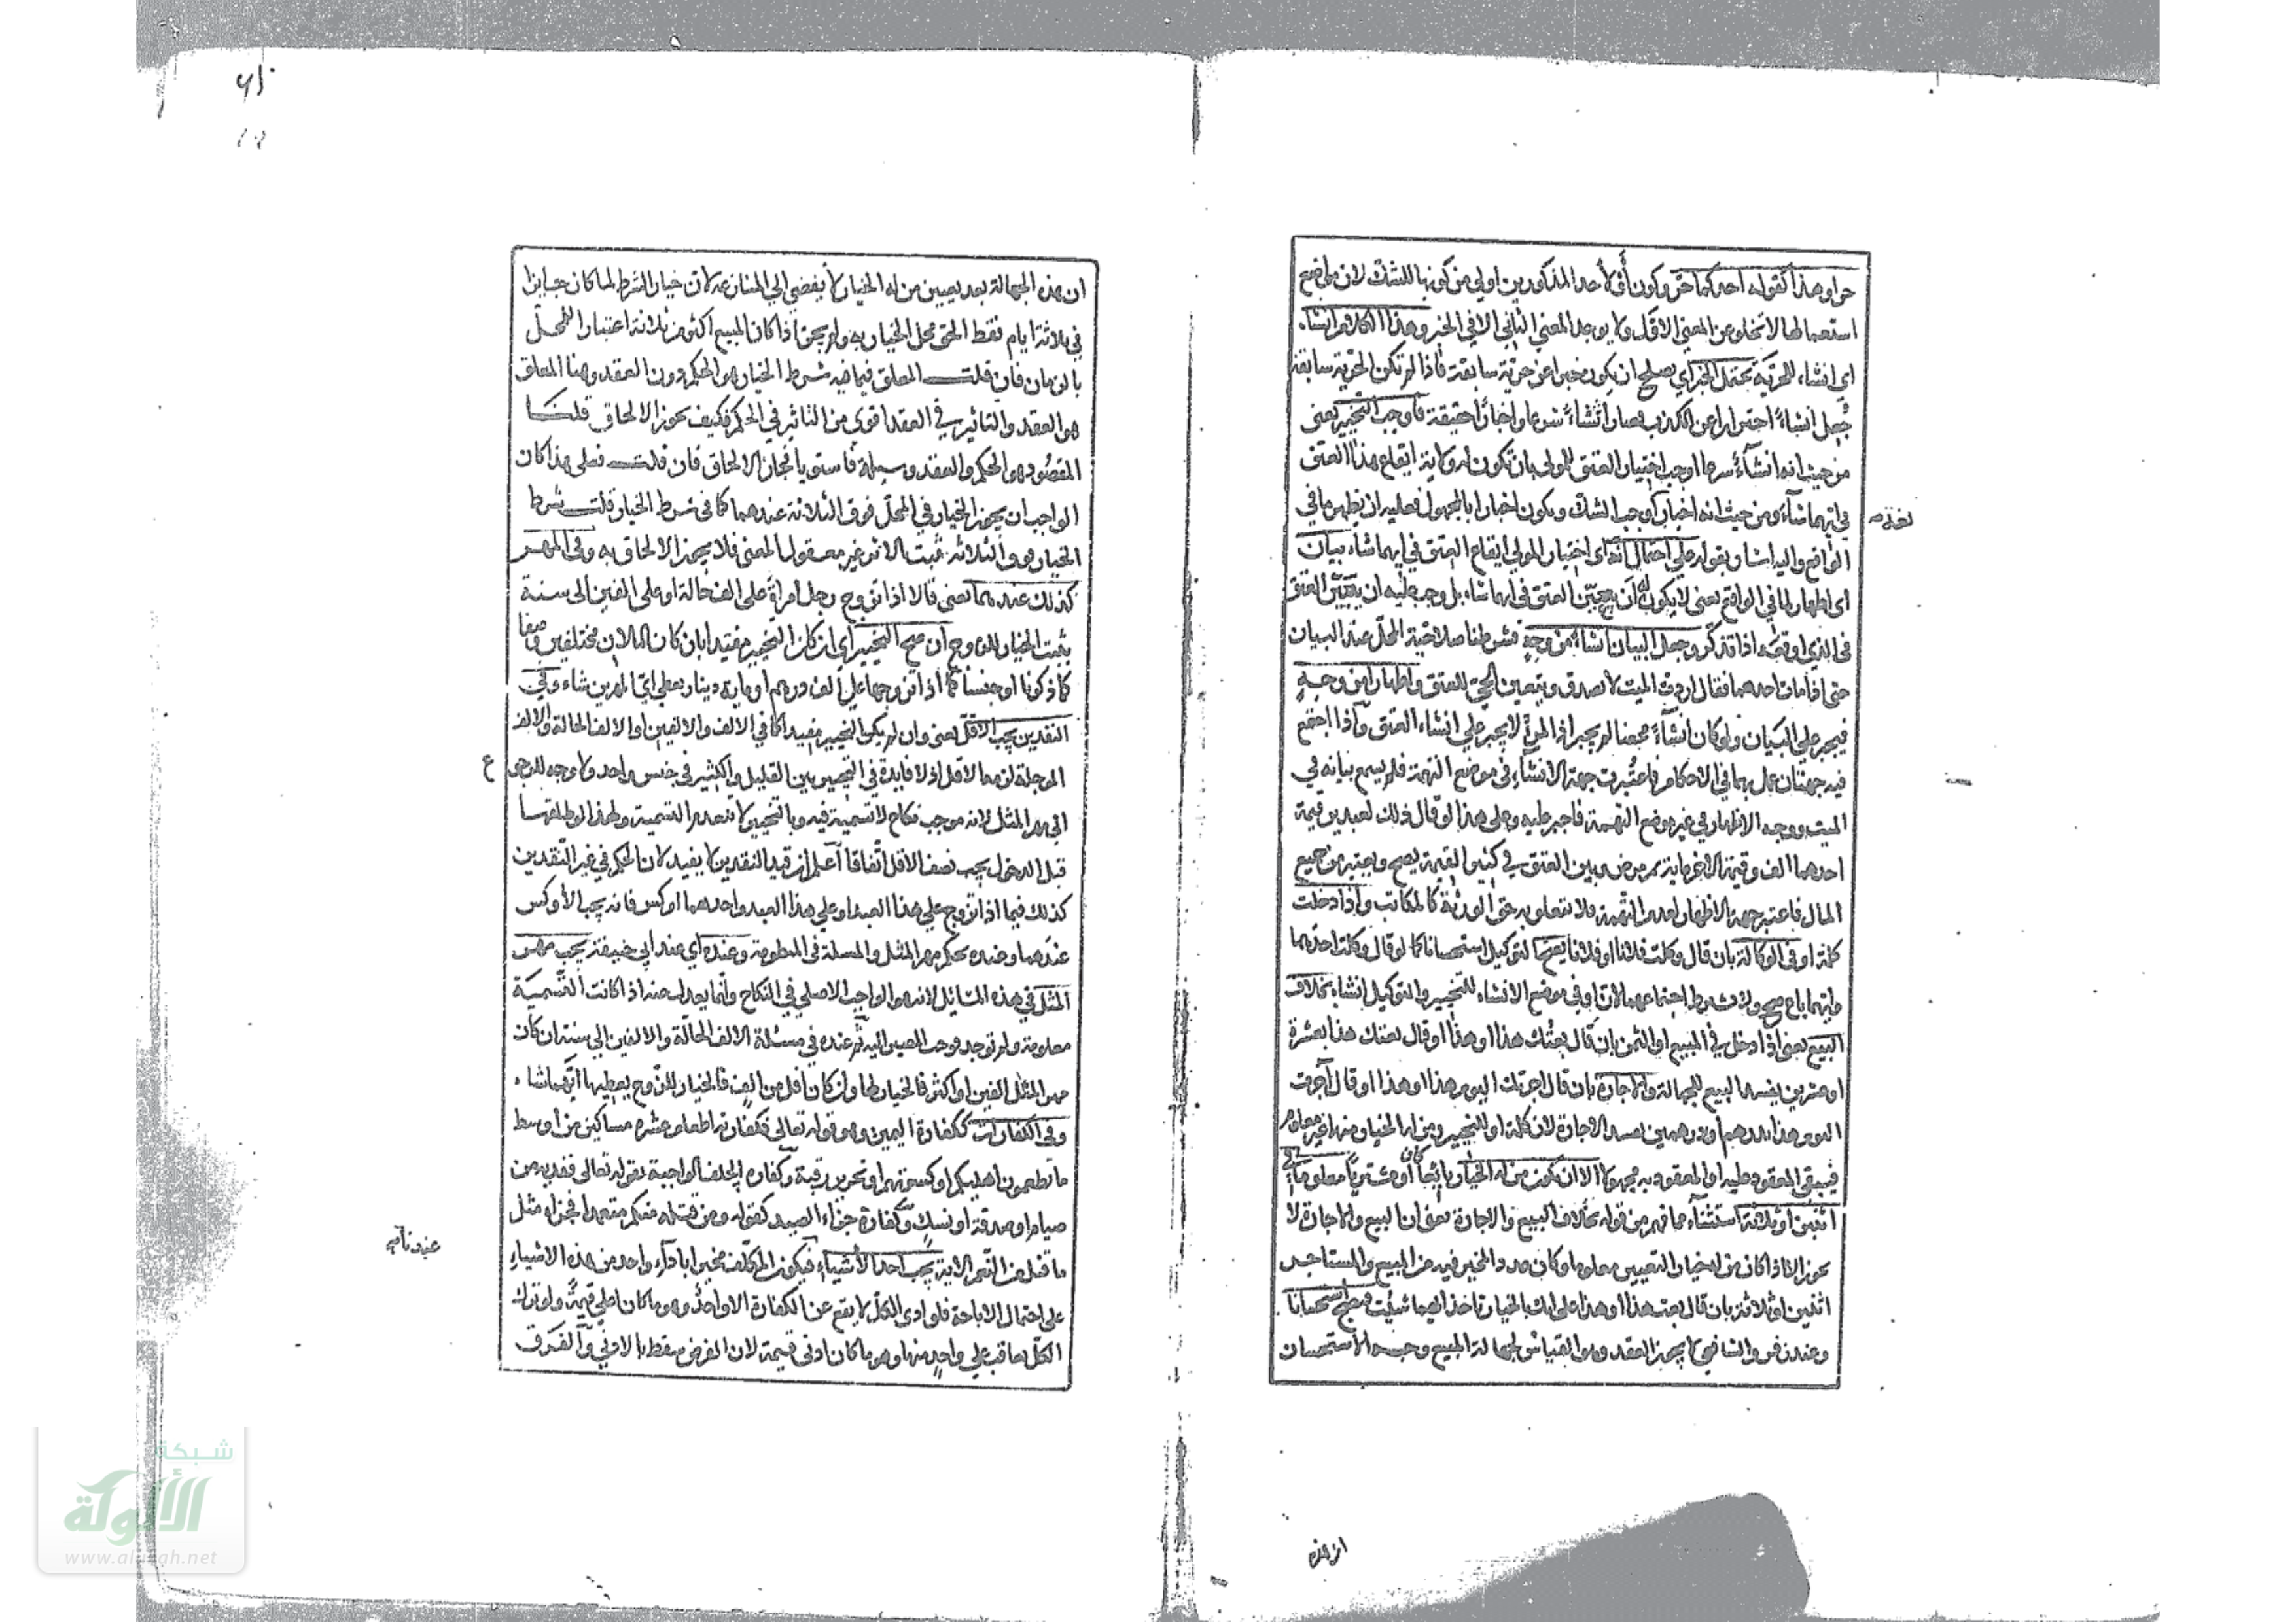 حر او هذا كقوله احدكما حر وكون أو لأحد المذكورين اولى من كونها للشك لان مواضع
استعمالها لا تخلو عن المعنى الاول ولا يوجد المعنى الثاني الا في الخبر وهذا الكلام انشاء
اي انشاء للحرية يحتمل الخبر اي يصلح ان يكون خبرا عن حرية سابقة فاذا لم تكن الحرية سابقة
جُعل انشاءً احترازا عن الكذب فصار انشاءً شرعا واخبارًا حقيقة فاوجب التخيير يعنى
من حيث انه انشاء شرعا اوجب اختيار العتق للمولى بان تكون له ولاية ايقاع هذا العتق
في ايهما شاء ومن حيث انه اخبار اوجب الشك ويكون اخبارا بالمجهول فعليه ان يظهر ما في
الواقع واليه اشار بقوله على احتمال انه اى اختيار المولى ايقاع العتق في ايهما شاء بيان
اى اظهار لما في الواقع يعنى لا يكون له ان يعيّن العتق في ايهما شاء بل وجب عليه ان يبين العتق
في الذي اوقعه اذا تذكر وجعل البيان انشاء من وجهٍ فشرطنا صلاحية المحل عند البيان
حتى اذا مات احدهما فقال اردت الميت لا يصدق ويتعين الحي للعتق واظهارا من وجهٍ
فيجبر على البيان ولو كان انشاءً محضا لم يجبر اذ المرء لا يجبر على انشاء العتق واذا اجتمع
فيه جهتان عمل بهما في الاحكام فاعتُبرت جهة الانشاء في موضع التهمة فلم يسمع بيانه في
الميت ووجه الاظهار في غير موضع التهمة فاجبر عليه وعلى هذا لو قال ذلك لعبدين قيمة
احدهما الف وقيمة الاخر مائة ثم مرض وبين العتق في كثير القيمة يصح ويعتبر من جميع
المال فاعتبر جهة الاظهار لعدم التهمة فلا يتعلق به حق الورثة كالمكاتب واذا دخلت
كلمة او في الوكالة بان قال وكلت فلانا او فلانا ببيع هذا يصح التوكيل استحسانا كما لو قال وكلت احدهما
فايهما باع صح ولا يشترط اجتماعهما لان او في موضع الانشاء للتخيير والتوكيل انشاء بخلاف
البيع يعنى اذا دخل في المبيع او الثمن بان قال بعتك هذا او هذا او قال بعتك هذا بعشرة
او عشرين يفسد البيع للجهالة والاجارة بان قال اجرتك اليوم هذا او هذا او قال آجرت
اليوم هذا بدرهم او بدرهمين يفسد الاجارة لان كلمة او للتخيير ومن له الخيار منهما غير معلوم
فيبقى المعقود عليه او المعقود به مجهولا الا ان يكون من له الخيار بايعا كان او مشتريا معلوما في
اثنين او ثلاثة استثناء مما فهم من قوله بخلاف البيع والاجارة يعنى ان البيع والاجارة لا
يجوز الا اذا كان من له خيار التعيين معلوما وكان عدد المخير فيه من المبيع والمستاجر
اثنين او ثلاثة بان قال بعت هذا او هذا على انك بالخيار تاخذ ايهما شئت فيصح استحسانا
وعند زفر والشافعي لا يجوز العقد وهو القياس لجهالة المبيع وجه الاستحسان
ان هذه الجهالة بعد تعيين من له الخيار لا يفضي الى المنازعة لان خيار الشرط لما كان جايزا
في ثلاثة ايام فقط الحق محل الخيار به ولم يجز اذا كان المبيع اكثر من ثلاثة اعتبارا للمحل
بالزمان فان قلت المعلق فيما فيه شرط الخيار هو الحكم دون العقد وهنا المعلق
هو العقد والتاثير في العقد اقوى من التاثير في الحكم فكيف يجوز الالحاق قلنا
المقصود هو الحكم والعقد وسيلة فاستويا فجاز الالحاق فان قلت فعلى هذا كان
الواجب ان يجوز الخيار في المحل فوق الثلاثة عندهما كما في شرط الخيار قلت شرط
الخيار فوق الثلاثة ثبت بالاثر غير معقول المعنى فلا يجوز الالحاق به وفى المهر
كذلك عندهما يعنى قالا اذا تزوج رجل امراة على الف حالة او على الفين الى سنة
يثبت الخيار للزوج ان صح التخيير اي ان كان التخيير مفيدا بان كان المالان مختلفين وصفا
كما ذكرنا او جنسا كما اذا تزوجها على الف درهم او مائة دينار يعطى اي المهرين شاء وفي
النقدين يجب الاقل يعنى وان لم يكن التخيير مفيدا كما في الالف والالفين او الالف الحالة والالف
الموجلة لزمه الاقل اذ لا فايدة في التخيير بين القليل والكثير في جنس واحد ولا وجه للرجوع
الى مهر المثل لانه موجب نكاح لا تسمية فيه وبالتخيير لا تنعدم التسمية ولهذا لو طلقها
قبل الدخول يجب نصف الاقل اتفاقا اعلم ان قيد النقدين لا يفيد لان الحكم في غير النقدين
كذلك فيما اذا تزوج على هذا العبد او على هذا العبد واحدهما اوكس فانه يجب الأوكس
عندهما وعنده يحكم مهر المثل والمسئلة في المنظومة وعنده اي عند ابي حنيفة يجب مهر
المثل في هذه المسائل لانه هو الواجب الاصلي في النكاح وانما يعدل عنه اذا كانت التسمية
معلومة ولم توجد فوجب المصير اليه ثم عنده في مسئلة الالف الحالّة والالفين الى سنة ان كان
مهر المثل الفين او اكثر فالخيار لها وان كان اقل من الف فالخيار للزوج يعطيها ايهما شاء
وفي الكفارات ككفارة اليمين وهو قوله تعالى فكفارته اطعام عشرة مساكين من اوسط
ما تطعمون اهليكم او كسوتهم او تحرير رقبة وكفارة الحلق الواجبة بقوله تعالى ففدية من
صيام او صدقة او نسك وكفارة جزاء الصيد كقوله ومن قتله منكم متعمدا فجزاء مثل
ما قتل من النعم الاية يجب احد الأشياء فيكون المكلف مخيرا باداء واحد من هذه الاشياء
على احتمال الاباحة فلو ادى الكل لا يقع عن الكفارة الا واحدٌ وهو ما كان اعلى قيمةً ولو ترك
الكل يعاقب على واحدٍ منها وهو ما كان ادنى قيمة لان الفرض يسقط بالادنى والفرق
ع
شبكة
الألوكة
www.alukah.net